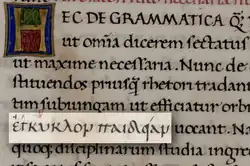 HEC DE GRAMMATICA Q̃
ut om̃ia dicerem sectatus
ut maxime necessaria. Nunc de
stituendos priusq̃ rhetori tradant
tim subiungam ut efficiatur orbi
ἐγκυκλον παιδιαν uocant. N
quoq; disciplinarum studia